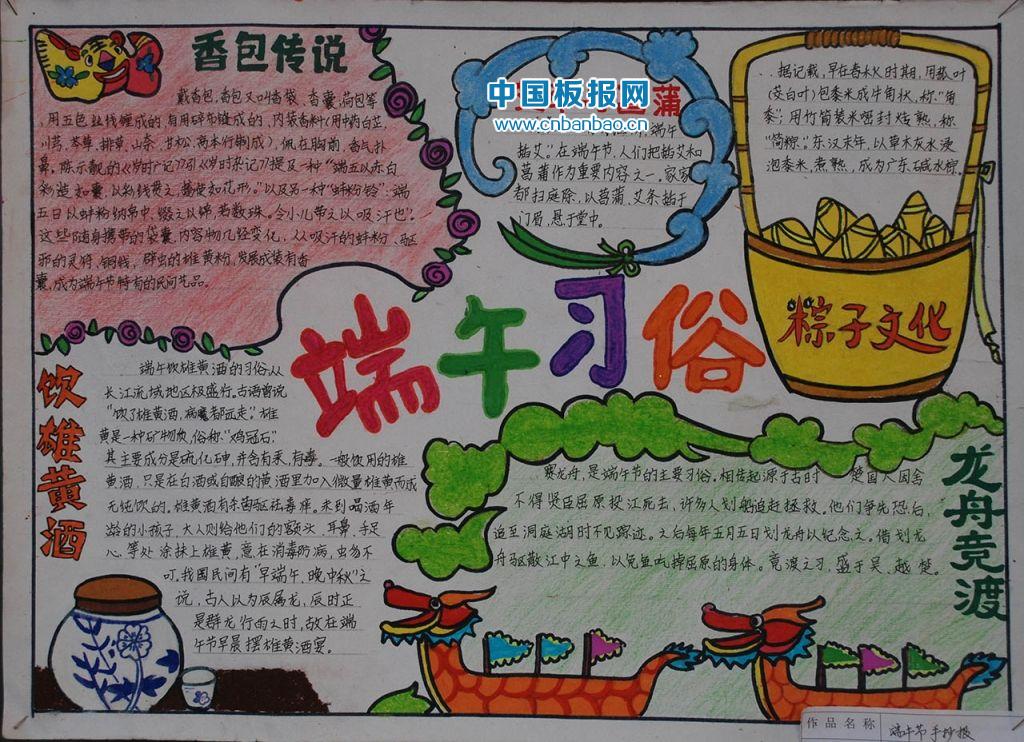 香包传说
戴香包,香包又叫香袋、香囊、荷包等,
用五色丝线缠成的,有用碎布缝成的,内装香料(用中药白芷、
川芎、芩草、排草、山柰、甘松、高本行制成),佩在胸前,香气扑
鼻。陈示靓的《岁时广记》引《岁时杂记》提及一种“端五以赤白
彩造如囊,以彩线贯之,搐使如花形。”以及另一种“蚌粉铃:端
五日以蚌粉纳帛中,缀之以绵,若数珠。令小儿带之以吸汗也”。
这些随身携带的袋囊,内容物几经变化,从吸汗的蚌粉、驱
邪的灵符、铜钱,辟虫的雄黄粉,发展成装有香
囊,成为端午节特有的民间艺品。
中国板报网
www.cnbanbao.cn
菖蒲
端午
插艾。”在端午节,人们把插艾和
菖蒲作为重要内容之一,家家
都扫庭除,以菖蒲、艾条插于
门眉,悬于堂中。
据记载,早在春秋时期,用菰叶
(茭白叶)包黍米成牛角状,称“角
黍”;用竹筒装米密封烤熟,称
“筒粽”。东汉末年,以草木灰水浸
泡黍米,煮熟,成为广东碱水粽。
粽子文化
端午习俗
饮雄黄酒
端午饮雄黄酒的习俗,从
长江流域地区极盛行。古语曾说
“饮了雄黄酒,病魔都远走”。雄
黄是一种矿物质,俗称“鸡冠石”,
其主要成分是硫化砷,并含有汞,有毒。一般饮用的雄
黄酒,只是在白酒或自酿的黄酒里加入微量雄黄而成,
无纯饮的。雄黄酒有杀菌驱虫毒痒。未到品酒年
龄的小孩子,大人则给他们的额头、耳鼻、手足
心等处涂抹上雄黄,意在消毒防病,虫豸不
叮。我国民间有“早端午,晚中秋”之
说,古人以为辰属龙,辰时正
是群龙行雨之时,故在端
午节早晨摆雄黄酒宴。
龙舟竞渡
赛龙舟,是端午节的主要习俗。相传起源于古时 楚国人因舍
不得贤臣屈原投江死去,许多人划船追赶拯救。他们争先恐后,
追至洞庭湖时不见踪迹。之后每年五月五日划龙舟以纪念之。借划龙
舟驱散江中之鱼,以免鱼吃掉屈原的身体。竞渡之习,盛于吴、越、楚。
作品名称 端午节手抄报